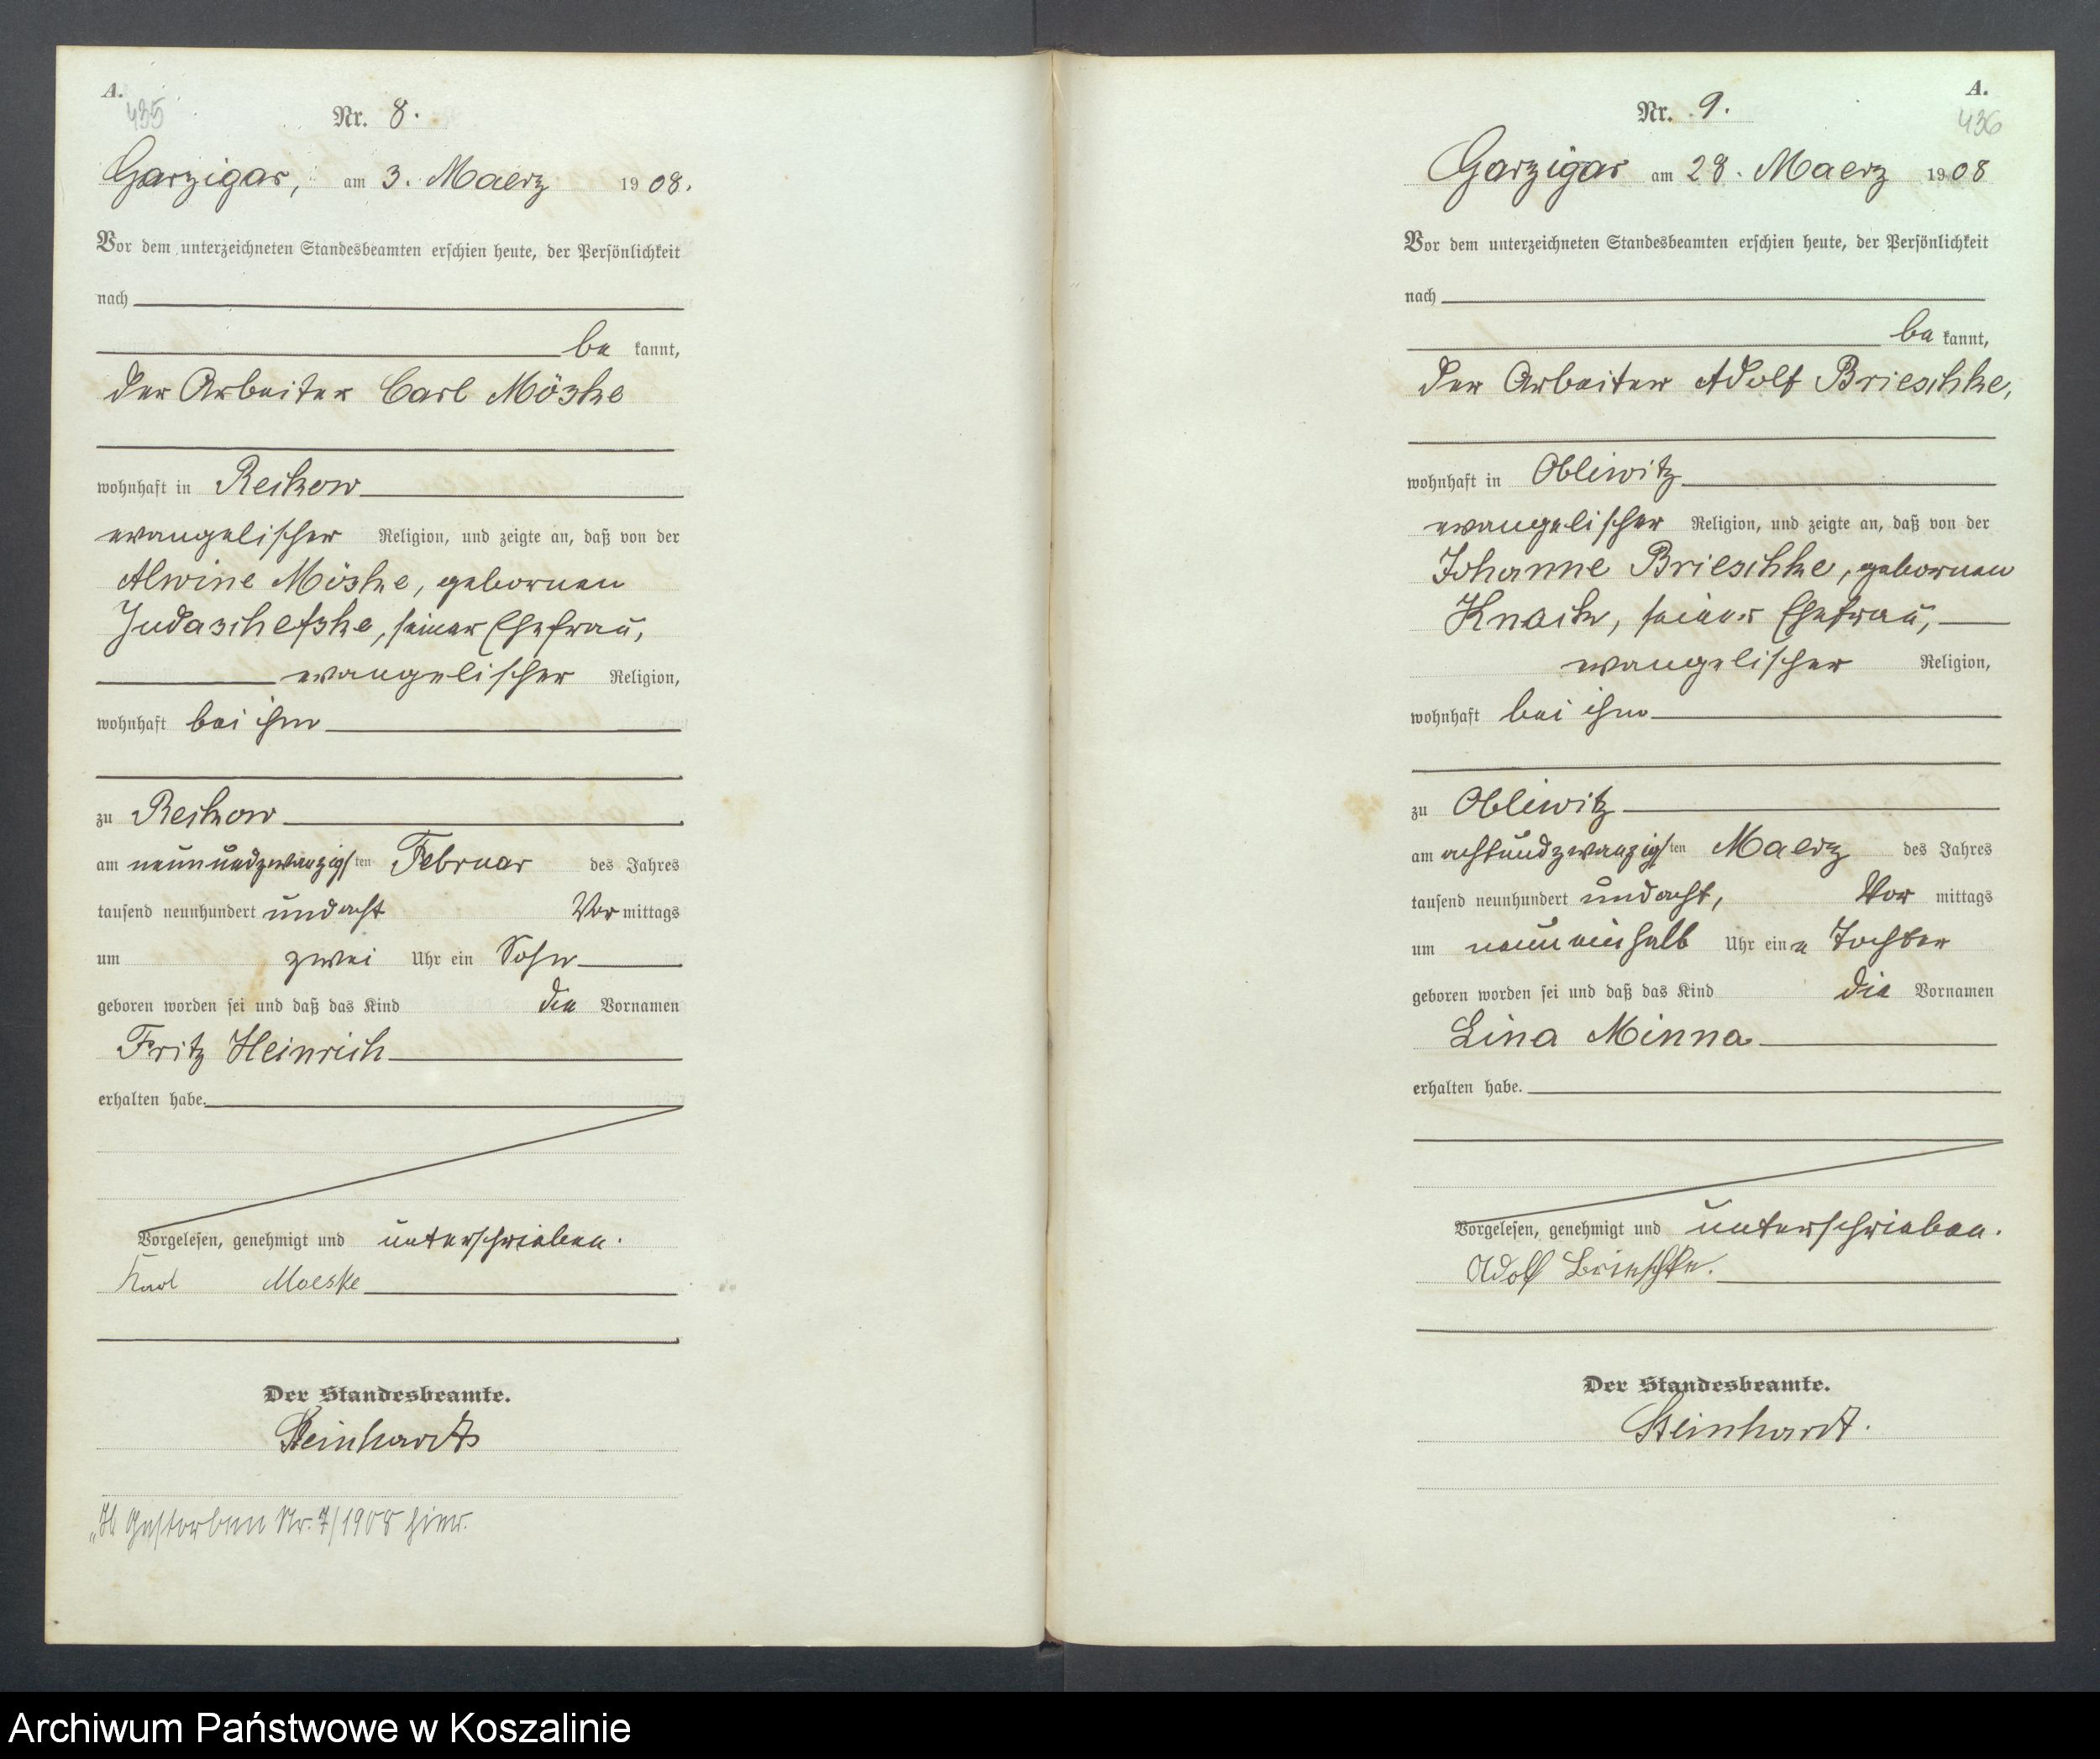 A.
435
Nr. 8.
Garzigar, am 3. Maerz 1908.
Vor dem unterzeichneten Standesbeamten erschien heute, der Persönlichkeit
nach
be kannt,
der Arbeiter Carl Möske
wohnhaft in Reckow
evangelischer Religion, und zeigte an, daß von der
Alwine Möske, geborenen
seiner Ehefrau,
evangelischer Religion,
wohnhaft bei ihm
zu Reckow
am neunundzwanzigsten Februar des Jahres
tausend neunhundert und acht Vor mittags
um zwei Uhr ein Sohn
geboren worden sei und daß das Kind die Vornamen
Fritz Heinrich
erhalten habe.
Vorgelesen, genehmigt und unterschrieben.
Karl Moeske
Der Standesbeamte.
Steinhardt
Gestorben Nr. 7/1908 hier.
A.
436
Nr. 9.
Garzigar am 28. Maerz 1908
Vor dem unterzeichneten Standesbeamten erschien heute, der Persönlichkeit
nach
be kannt,
der Arbeiter Adolf Brieschke,
wohnhaft in Obliwitz
evangelischer Religion, und zeigte an, daß von der
Johanne Brieschke, geborenen
Knack, seiner Ehefrau,
evangelischer Religion,
wohnhaft bei ihm
zu Obliwitz
am achtundzwanzigsten Maerz des Jahres
tausend neunhundert und acht, Vor mittags
um neun ein halb Uhr eine Tochter
geboren worden sei und daß das Kind die Vornamen
Lina Minna
erhalten habe.
Vorgelesen, genehmigt und unterschrieben.
Adolf Brieschke.
Der Standesbeamte.
Steinhardt.
Archiwum Państwowe w Koszalinie